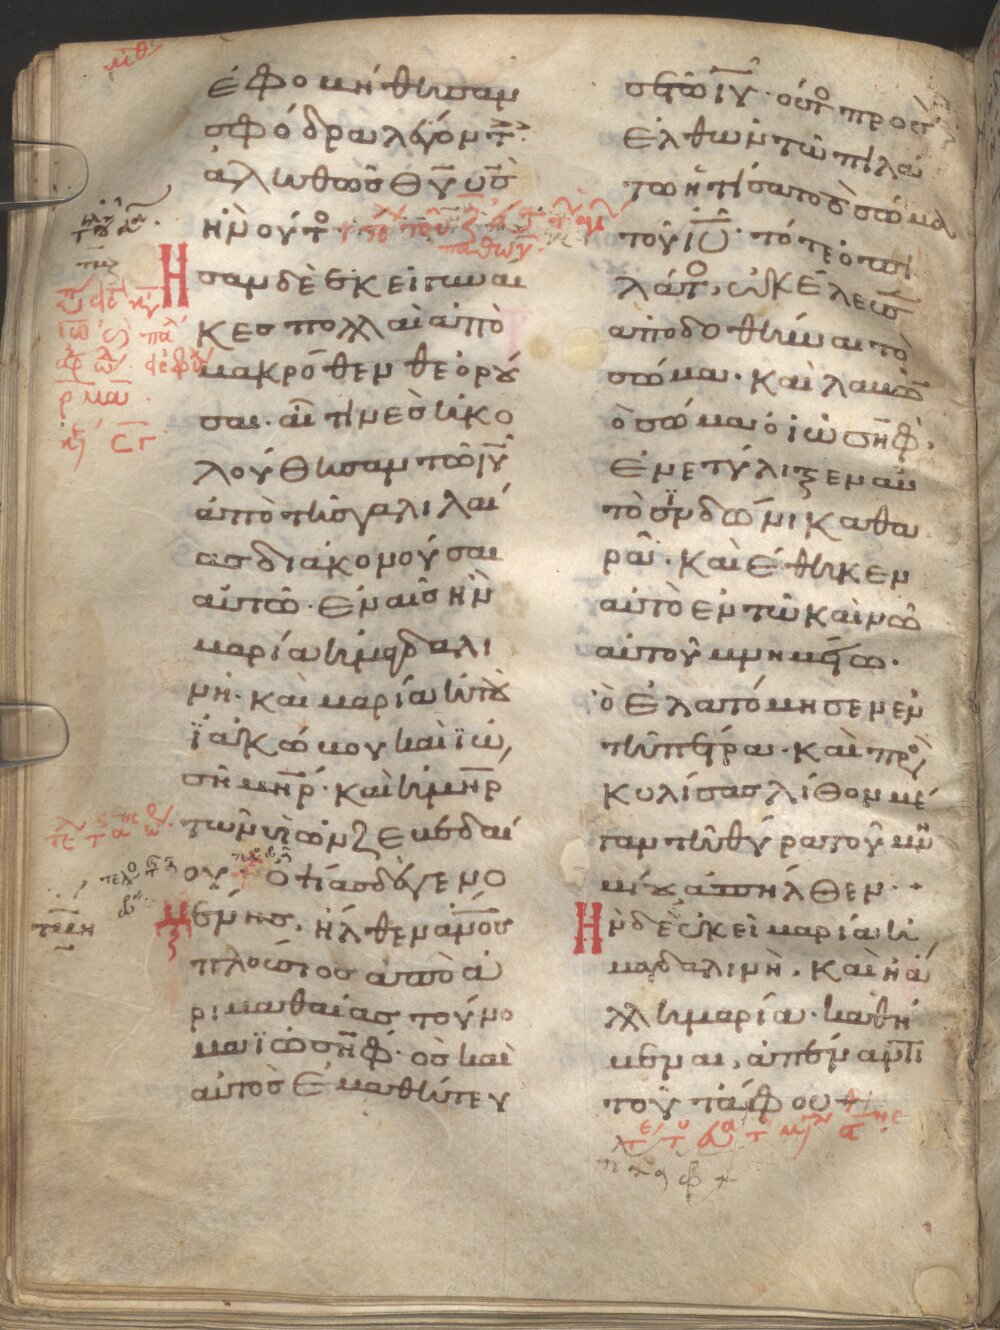 ἐφοβήθησαν
σφόδρα λέγοντ
ἀληθῶς Θῡ ῡς
ἦν οὗτο
παθῶν
Ησαν δὲ ἐκεῖ γυναι
κες πολλαὶ ἀπὸ
μακρόθεν θεορού
σαι· αἵτινες ἠκο
λούθησαν τῶ ιῡ
ἀπὸ τῆς γαλιλαί
ας διακονοῦσαι
αὐτῶ· ἐν αἷς ἦν
μαρία ἡ μαγδαλι
νὴ· καὶ μαρία ἡ τοῦ
ϊακώβου καὶ ϊω
σῆ μηρ· καὶ ἡ μηρ
τῶν υἱῶν ζεβεδαί
ου· Ὀψίας δὲ γενο
μένης, ἦλθεν ἄνος
πλούσιος ἀπὸ ἀ
ριμαθαίας τοὔνο
μα ϊωσὴφ· ὃς καὶ
αὐτὸς ἐμαθήτευ
σε τῶ ιῡ· οὗτο προσ
ελθὼν τῶ πιλά
τω ἠτίσατο τὸ σῶμα
τοῦ ιῡ· τότε ὁ πι
λάτο, ἐκέλευσ
ἀποδοθῆναι τὸ
σῶμα· καὶ λαβὼ
ὸ σῶμα ὁ ϊωσὴφ,
ἐνετύλιξεν αὐ
τὸ σινδῶνι καθα
ρᾶ· καὶ ἔθηκεν
αὐτὸ ἐν τῶ καινῶ
αὐτοῦ μνημείω·
ὃ ἐλατόμησεν ἐν
τῆ πέτρα· καὶ προσ
κυλίσας λίθον μέ
γαν τῆ θύρα τοῦ μνη
μείου ἀπῆλθεν·
Ην δὲ ἐκεῖ μαρία ἡ
μαγδαλινὴ, καὶ ἡ ἄ
λλη μαρία· καθή
μεναι, ἀπέναντι
τοῦ τάφου